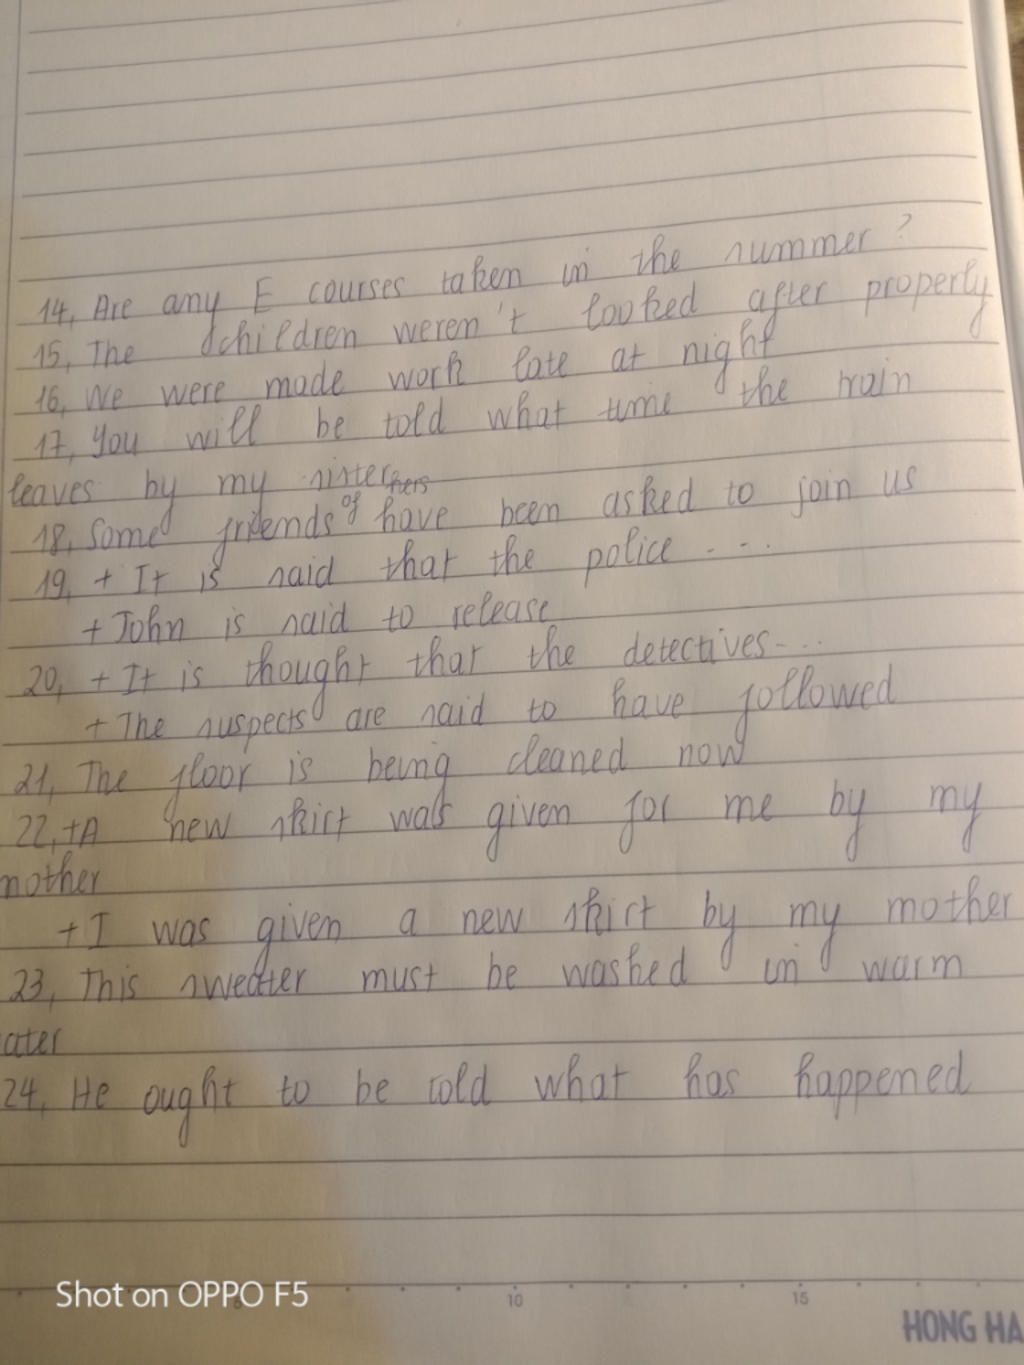 14, Are any E courses taken in the summer ?
15, The children weren't looked after properly
16, We were made work late at night
17, You will be told what time the train
leaves by my sister
18, Some friends of hers have been asked to join us
19, + It is said that the police ....
+ John is said to release
20, + It is thought that the detectives ....
+ The suspects are said to have followed
21, The floor is being cleaned now
22, + A new skirt was given for me by my
mother
+ I was given a new skirt by my mother
23, This sweater must be washed in warm
ater
24, He ought to be told what has happened
Shot on OPPO F5
10
15
HONG HA